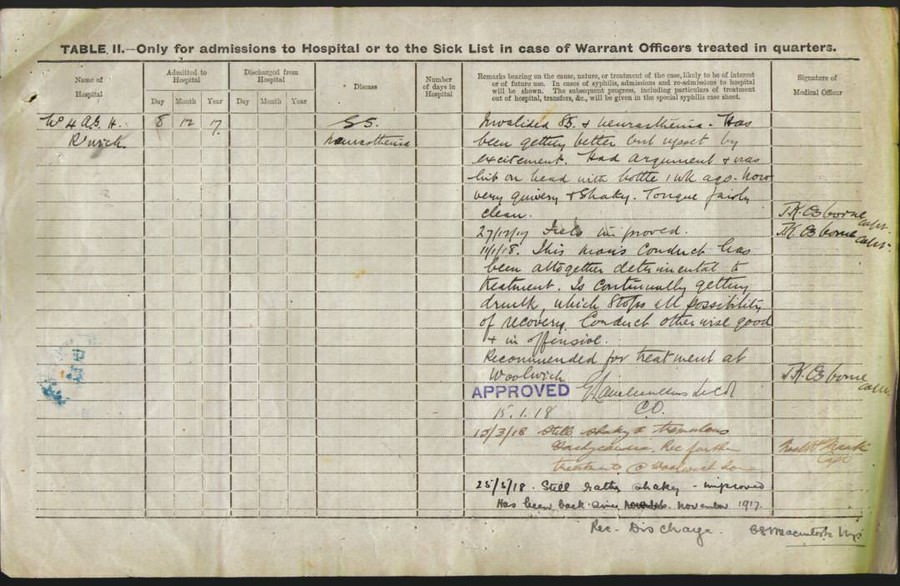 TABLE II.—Only for admissions to Hospital or to the Sick List in case of Warrant Officers treated in quarters.
Name of Hospital
Admitted to Hospital
Discharged from Hospital
Disease
Number of days in Hospital
Remarks bearing on the cause, nature, or treatment of the case, likely to be of interest
or of future use. In cases of syphilis, admissions and re-admissions to hospital
will be shown. The subsequent progress, including particulars of treatment
out of hospital, transfers, &c., will be given in the special syphilis case sheet.
Signature of Medical Officer
Day Month Year Day Month Year
8 12 17 S.S. Invalided & neurasthenia. Has
R'wich. neurasthenia been getting better but upset by
excitement. Had argument & was
hit on head with bottle 1 wk ago. Now
very quivery & shaky. Tongue fairly
clean. T.K. Osborne capt.
27/12/17 Feels improved. T.K. Osborne capt.
11/1/18. This man's conduct has
been altogether detrimental to
treatment. Is continually getting
drunk, which stops all possibility
of recovery. Conduct otherwise good
& inoffensive.
Recommended for treatment at
Woolwich T.K. Osborne capt.
APPROVED Lt Col
15.1.18 CO.
/3/18 Still shaky & tremulous
Tachycardia. Rec further
treatment @ Woolwich Capt
25/5/18. Still rather shaky - improved
Has been back since November 1917.
Rec. Discharge. Macintosh